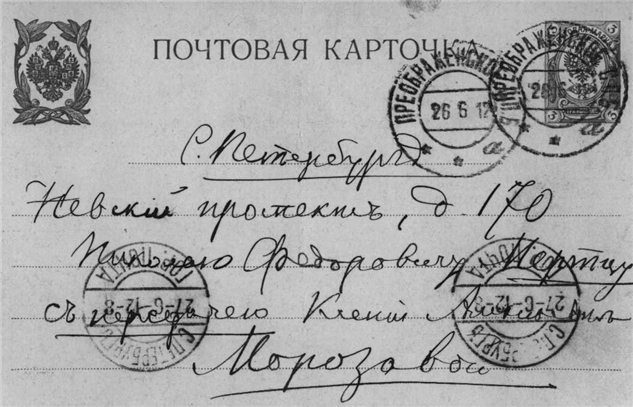 ПОЧТОВАЯ КАРТОЧКА
ПРЕОБРАЖЕНСКОЕ
26 6 12
ПРЕОБРАЖЕНСКОЕ
26 6 12
3 3
С. Петербургъ
Невскій проспектъ, д. 170
Николаю Федоровичу
съ передачею Ксеніи
Морозовой
ГОР. ПОЧТА
27-6-12-8
С. ПЕТЕРБУРГЪ
ГОР. ПОЧТА
27-6-12-8
С. ПЕТЕРБУРГЪ